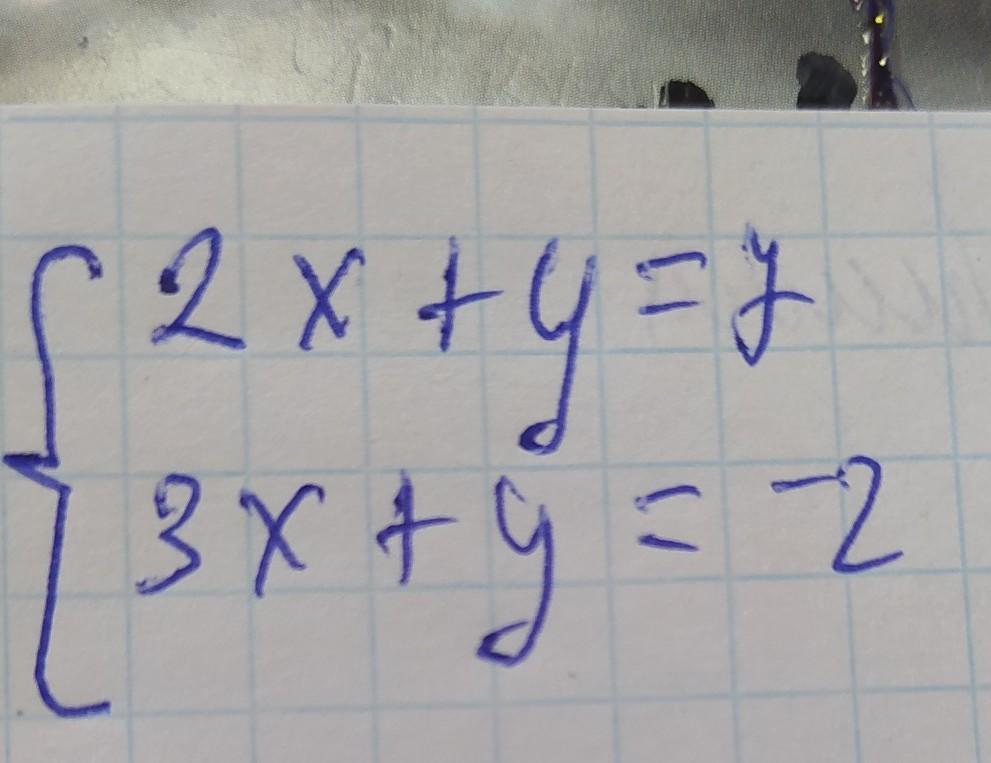 2x+y=7
3x+y=-2